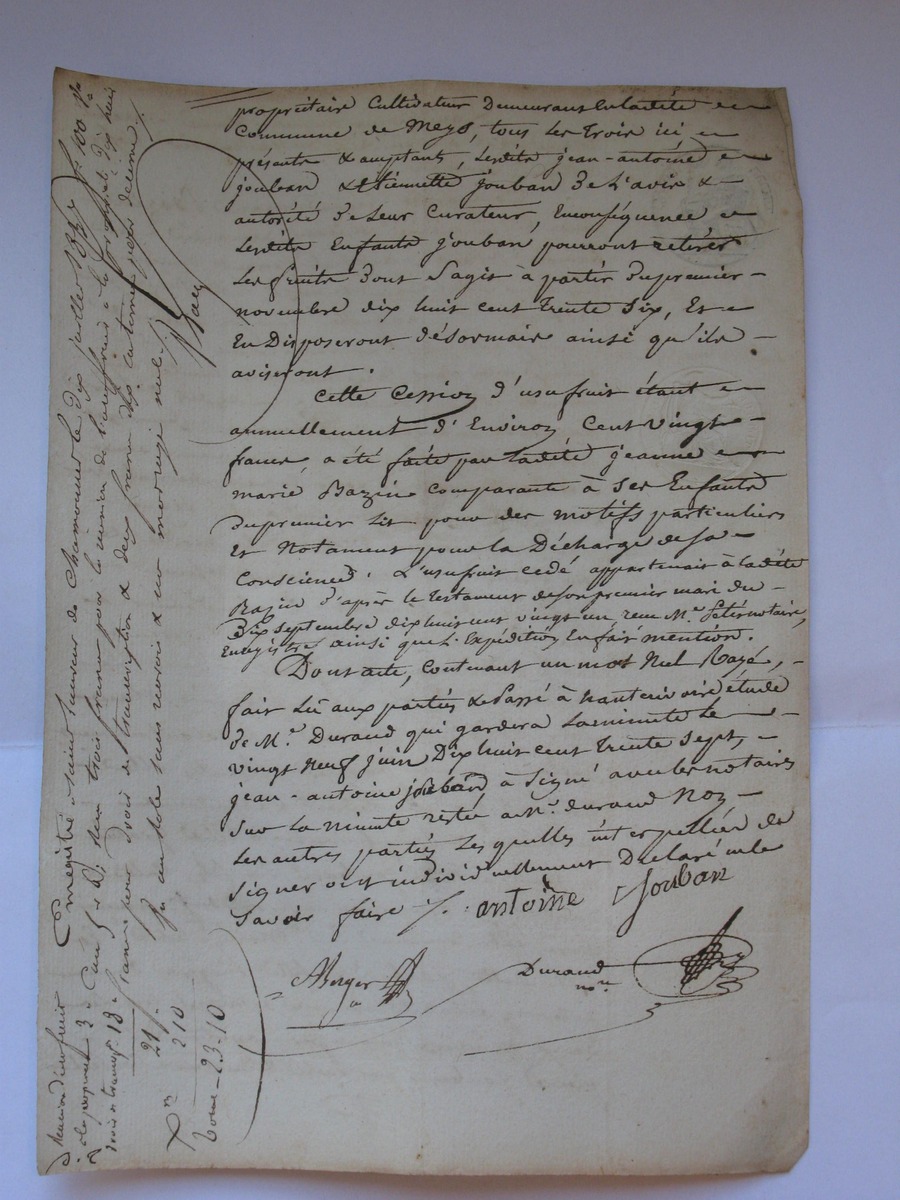 propriétaire Cultivateur Demeurant en ladite
Commune de Meys, tous les trois ici
présents & acceptants, lesdits jean-antoine
jouban & Etiennette jouban de l'avis &
autorité de leur Curateur, En conséquence
lesdits Enfants jouban, pourront retirer
les fruits dont s'agit à partir du premier
novembre dix huit cent trente six, Et
En Disposeront désormais ainsi qu'ils
aviseront.
Cette Cession d'usufruit étant
annuellement d'Environ Cent vingt
francs, a été faite par ladite jeanne
marie Bazin Comparante à ses Enfants
du premier lit pour des motifs particuliers
Et Notament pour la Décharge de sa
Conscience. L'usufruit cédé appartenait à ladite
Bazin d'après le testament de son premier mari du
Dix septembre dix huit cent vingt un, reçu Me. notaire,
Enregistré ainsi que l'Expédition En fait mention.
Dont acte, Contenant un mot Nul Rayé,
fait lu aux parties & Passé à étude
de Me. Durand qui gardera la minute le
vingt neuf juin Dix huit cent trente sept,
jean-antoine jouban à signé avec les notaires
sur la minute restée a Me. durand Non
les autres parties les quelles interpellées de
signer ont individuellement Déclaré ne le
savoir faire ./. antoine Jouban
Berger
Durand
nore
Enregistré à saint Laurent de Chamousset le dix juillet 1837
francs pour la réunion de l'usufruit à la propriété dix huit
francs pour droit de transcription & deux francs dix centimes pour décime
au rôle sans renvois & en marge nul
Réunion d'usufruit
à la propriété 3.
droit de transcrip. 18.
21.
2 10
23-10